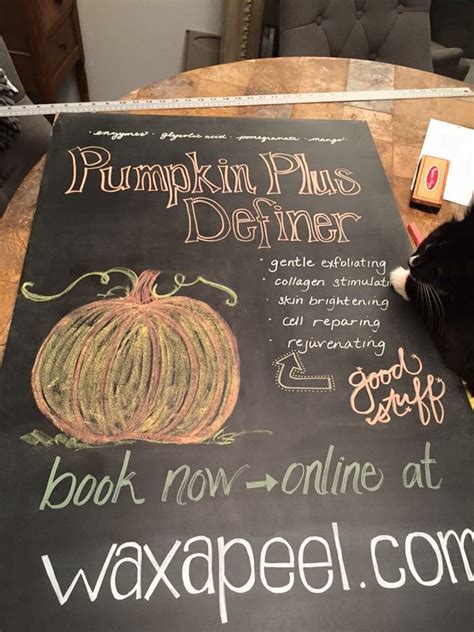 enzymes · glycolic acid · pomegranate · mango
Pumpkin Plus
Definer
· gentle exfoliating
· collagen stimulati
· skin brightening
· cell reparing
· rejuvenating
good
stuff
book now → online at
waxapeel.com